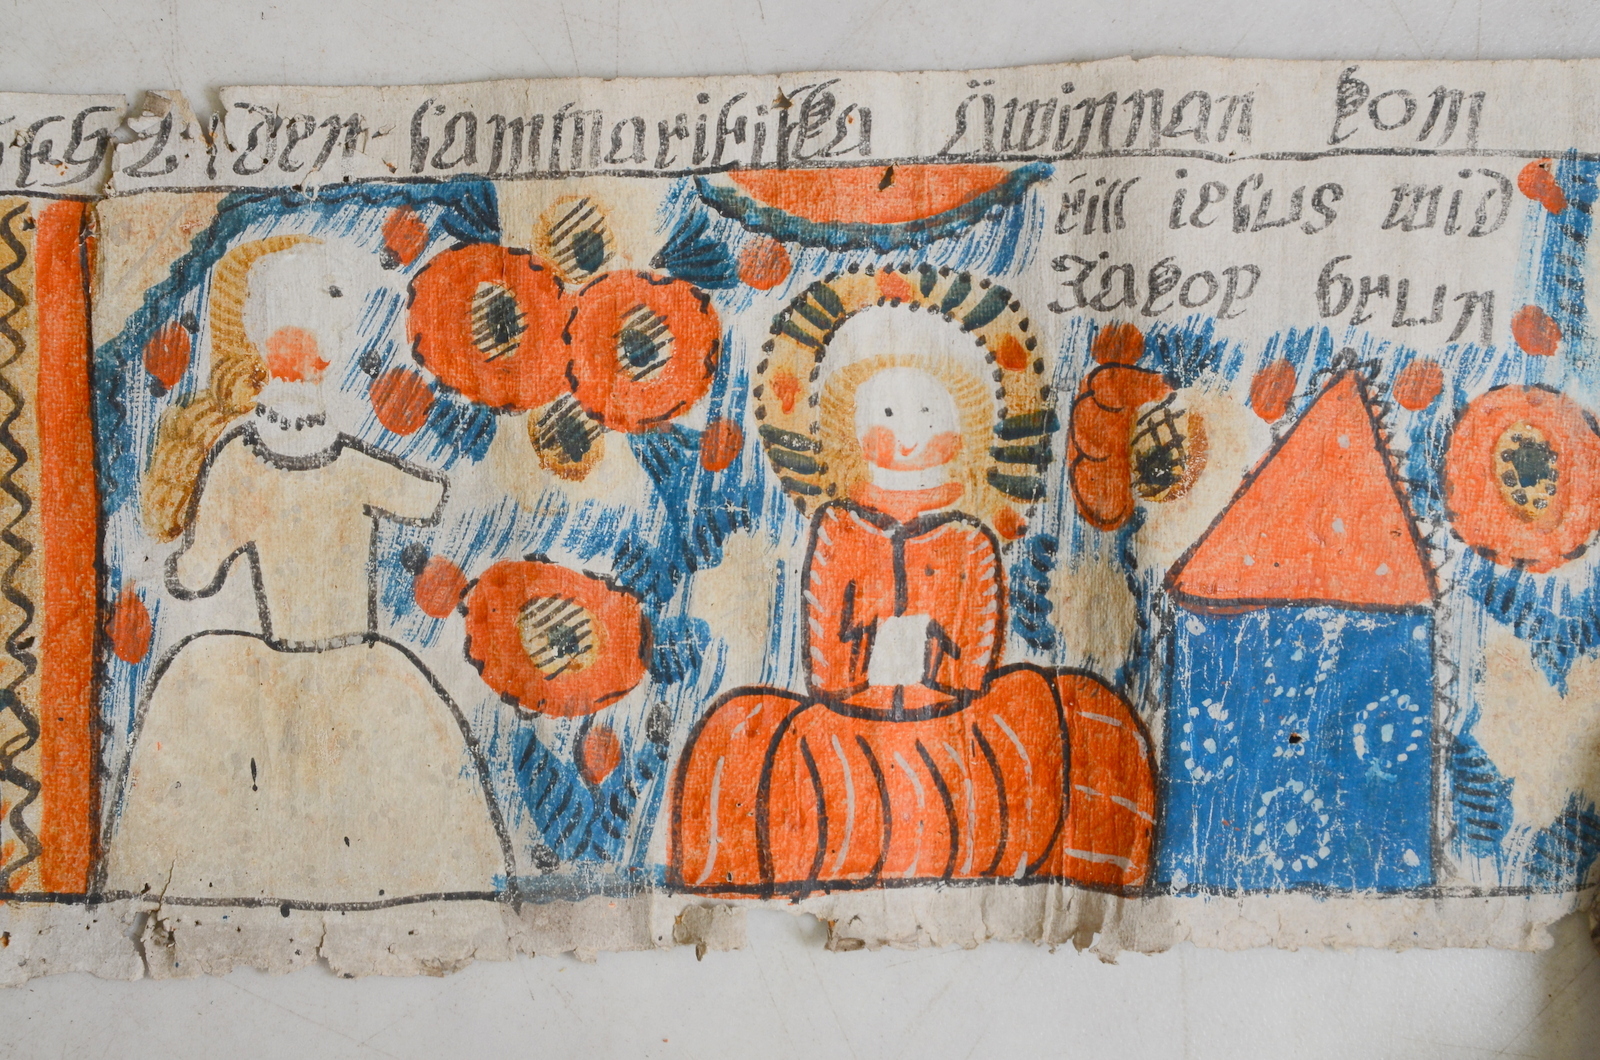 den sammaritiska Qwinnan kom
till iesus wid
Jacop brun